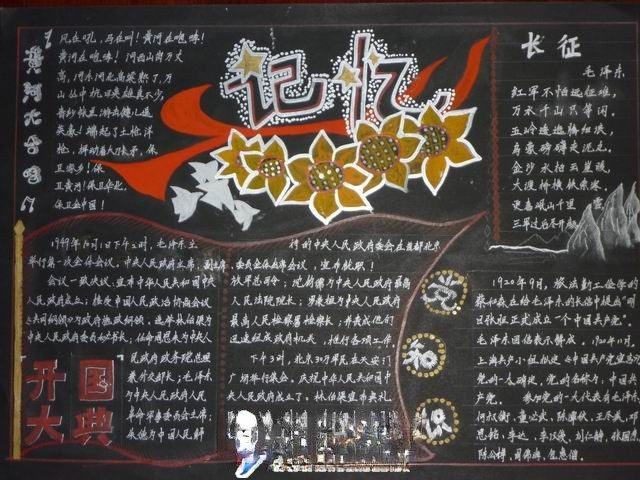 黄河大合唱
风在吼，马在叫！黄河在咆哮！
黄河在咆哮！河西山岗万丈
高，河东河北高粱熟了，万
山丛中抗日英雄真不少，
青纱帐里游击健儿逞
英豪！端起了土枪洋
枪，挥动着大刀长矛，保
卫家乡！保
卫黄河！保卫华北，
保卫全中国！
记忆
长征
毛泽东
红军不怕远征难，
万水千山只等闲。
五岭逶迤腾细浪，
乌蒙磅礴走泥丸。
金沙水拍云崖暖，
大渡桥横铁索寒。
更喜岷山千里雪，
三军过后尽开颜
开国大典
1949年10月1日下午2时，毛泽东主
举行第一次全体会议，中央人民政府主席，副主席，
会议一致决议，宣布中华人民共和国中
人民政府成立；接受中国人民政治协商会议
《共同纲领》为政府施政纲领，选举林伯渠为
中央人民政府委员会秘书长，任命周恩来为中央人
民政府政务院总理
兼外交部长；毛泽东
为中央人民政府人民
革命军事委员会主席；
朱德为中国人民解
持的中央人民政府委员会在首都北京
委员会任出席会议，宣布就职！
放军总司令；沈钧儒为中央人民政府最高
人民法院院长；罗荣桓为中央人民政府
最高人民检察署检察长；并责成他们
迅速组成政府机关，推行各项工作
下午3时，北京30万军民在天安门
广场举行集会。庆祝中华人民共和国中
央人民政府成立了。林伯渠宣布典礼
党知识
1920年9月，旅法勤工俭学的
蔡和森在给毛泽东的长信中提出"明
目张胆正式成立一个中国共产党"。
毛泽东回信表示解成。1920年11月，
上海共产小组拟定《中国共产党宣言》
党的一大确定，党的名称为，中国共
产党。 参加党的一大代表有毛泽东，
何叔衡、董必武、陈潭秋、王尽美、邓
恩铭、李达、李汉俊、刘仁静、张国焘、
陈公博、周佛海、包惠僧。